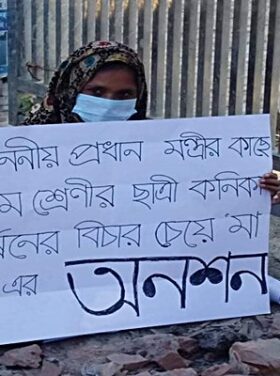 ননীয় প্রধান মন্ত্রীর কাছে
ম শ্রেণীর ছাত্রী কনিক
নের বিচার চেয়ে মা
এর অনশন